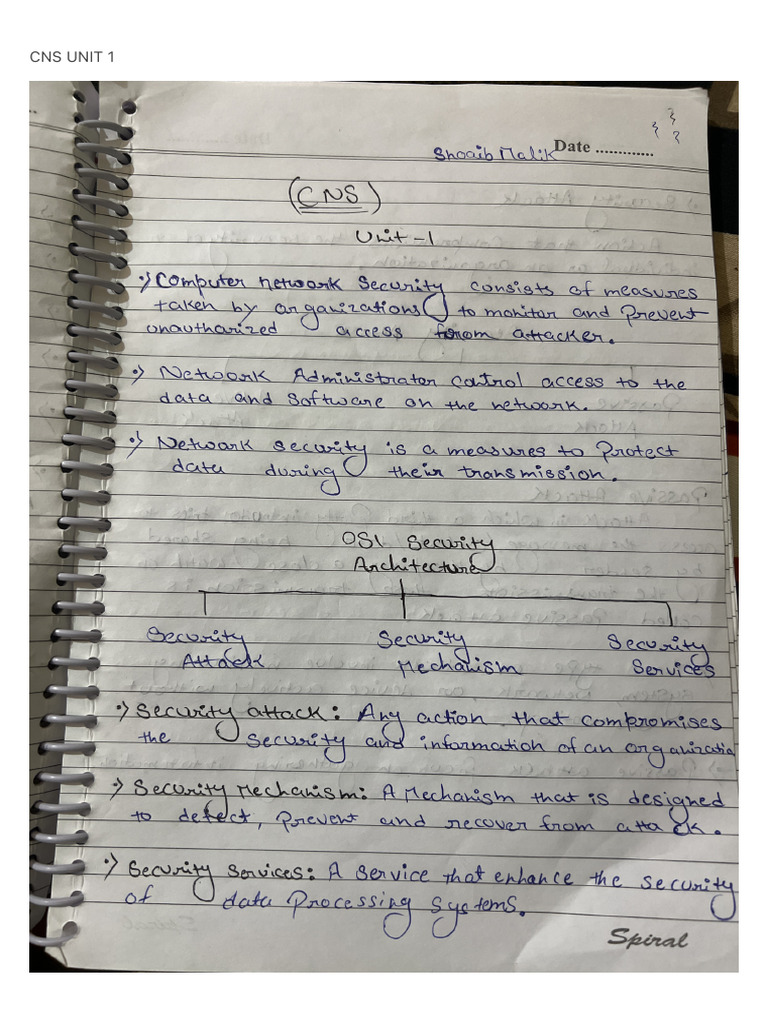 CNS UNIT 1
Shoaib Malik Date ............
(CNS)
Unit -1
Computer network security consists of measures
taken by organizations to monitor and prevent
unautharized access from attacker.
Network Administrator control access to the
data and software on the network.
Network security is a measures to protect
data during their transmission.
OSI Security
Architecture
Security Attack
Security Mechanism
Security Services
Security attack: Any action that compromises
the security and information of an organizatio
Security Mechanism: A Mechanism that is designed
to detect, prevent and recover from attack.
Security Services: A service that enhance the security
of data Processing systems.
Spiral